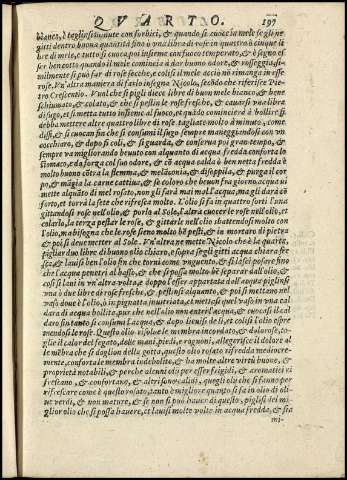 QVARTO. 197
bianco, è tagliosi minuto con forbici, & quando si cuoce la mele se gli ne
gitti dentro buona quantità sino à una libra di rose in quattro ò cinque li
bre di mele, e tutto si cuoca poi insieme con fuoco temperato, & è segno es
ser ben cotto quando il mele comincia à dar buono odore, & rosseggia si-
milmente si può far di rose secche, e colisi il mele acciò nõ rimanga in esse
rose. Vn'altra maniera di farlo insegna Nicolo, secõdo che riferisce Pie
tro Crescentio. Vuol che si pigli diece libre di buon mele bianco, & bene
schiumato, & colato, & che si pestin le rose fresche, & cauarsi vna libra
di sugo, et si metta tutto insieme al fuoco, et quãdo comincierà à bollire si
debba mettere altre quattro libre di rose tagliate molto à minuto, come
dissi, & si cuocan sin che si consumi il sugo sempre maneggiandosi con vn
cocchiaro, & dopo si coli, & si guarda, & conserua poi gran tempo, &
sempre va migliorando beuuto con alquanto di acqua fredda conforta lo
stomaco, da forza col suo odore, & cõ acqua calda ò ben netta fredda è
molto buono cõtra la flemma, & melãconia, & dissoppila, & purga il cor
po, & mãgia la carne cattiua, & se coloro che beuon fra giorno acqua ui
mette alquãto di mel rosato, non gli farà mai mal l'acqua, ma gli darà cõ
forto, et torrà la sete che rifresca molto. L'olio si fa in quattro forti l'una
gittandosi rose nell'olio, & porlo al Sole, l'altra cuocer le rose nell'olio, et
colarlo, la terza pestar le rose, & gitterle nell'olio sbattendosi molto con
l'olio, ma bisogna che le rose sieno molto bẽ pesti, & in mortaro di pietra
& poi si deue metter al Sole. Vn'altra ne mette Nicolo che è la quarta,
pigliar due libre di buono olio chiaro, e sopra segli gitti acqua chiara fre
sca & lauisi ben l'olio sin che torni come vnguento, & si lasci posare sino
che l'acqua penetri al basso, & che si possa molto bẽ separar dall'olio, &
cosi si laui in vn'altra volta, & doppo l'esser appartata dell'acqua piglinsi
vna ò due libre di rose fresche, & pestinsi alquanto, & poi si mettano nel
vaso doue è l'olio, ò in pignatta inuitriata, et mettasi quel vaso in vna cal
dara di acqua bollita, pur che nell'olio non entri l'acqua, & cuocasi il cal
daro sin tanto si consumi l'acqua, & dopo lieuisi de lì, et colisi l'olio espre
mendosi le rose. Questo olio risolue le membra ritondato, & dolorose, to
glie il calor del fegato, dolle mani, piedi, e rognoni, allegerisce il dolore al
le mẽbra che si doglion della gotta, questo olio rosato rifredda mediocre-
mente, conforta le membra indebolite, & ha molte altre virtù buone, &
proprietà notabili, & perche alcuni olii per esser frigidi, & aromatici ri
frescano, & confortano, & altri sono calidi, quegli olii che si fanno per
rifrescare come è questo rosato, tanto è migliore quanto si fa in olio di oli
ue verdi, & non mature, & se non si può hauere di questo, piglisi del mi
glior olio che si possa hauere, et lauisi molte volte in acqua fredda, & sia
mi-